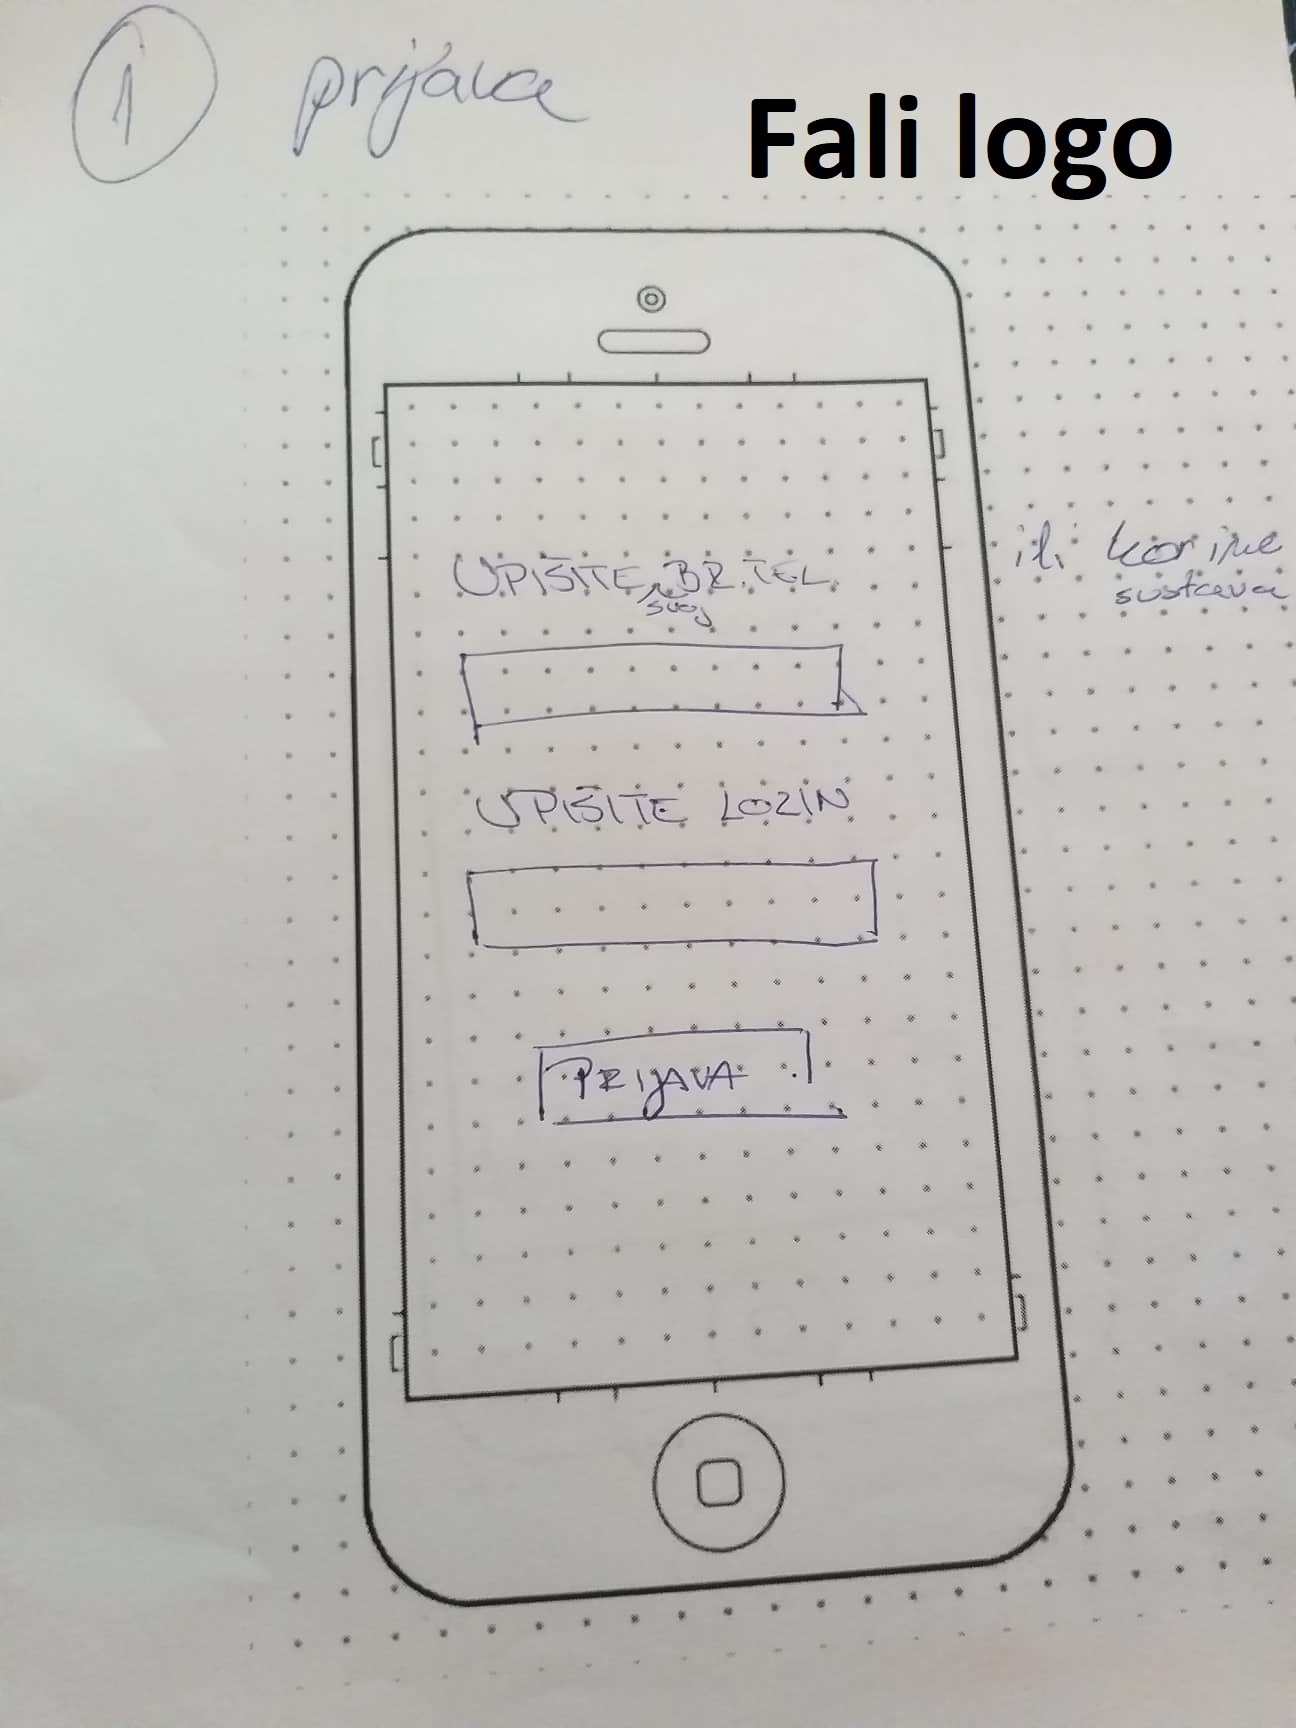 1 prijava
Fali logo
UPIŠITE BR. TEL.
svoj
ili kor ime
sustava
UPIŠITE LOZIN
PRIJAVA